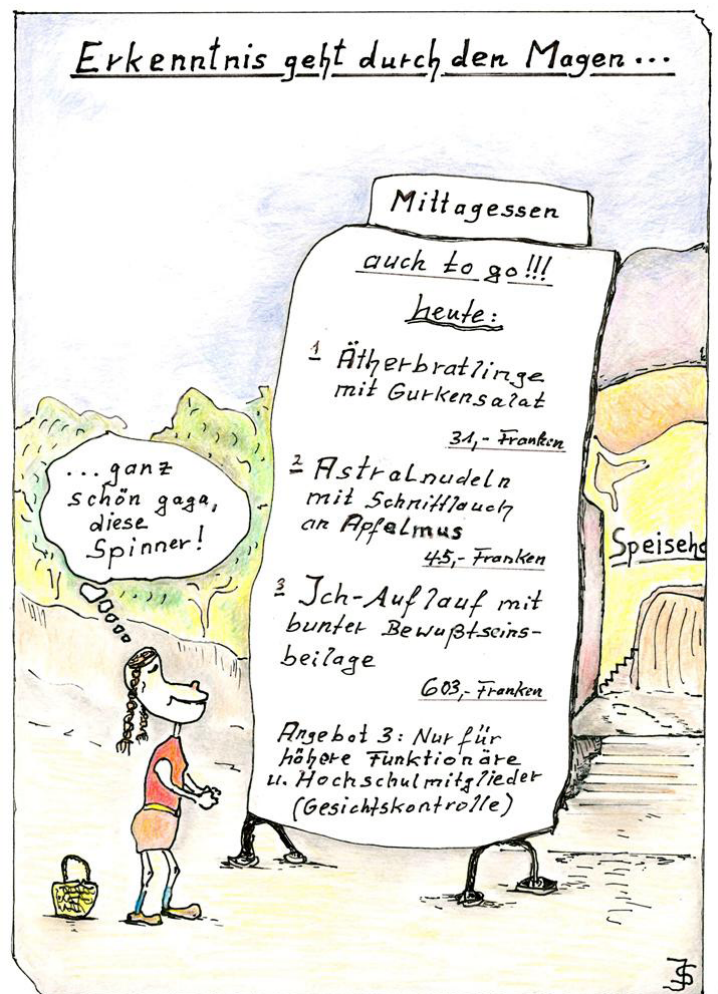 Erkenntnis geht durch den Magen...
Mittagessen
auch to go!!!
heute:
1 Ätherbratlinge
mit Gurkensalat
31,- Franken
2 Astralnudeln
mit Schnittlauch
an Apfelmus
45,- Franken
3 Ich-Auflauf mit
bunter Bewußtseins-
beilage
603,- Franken
Angebot 3: Nur für
höhere Funktionäre
u. Hochschulmitglieder
(Gesichtskontrolle)
...ganz
schön gaga,
diese
Spinner!
Speiseh